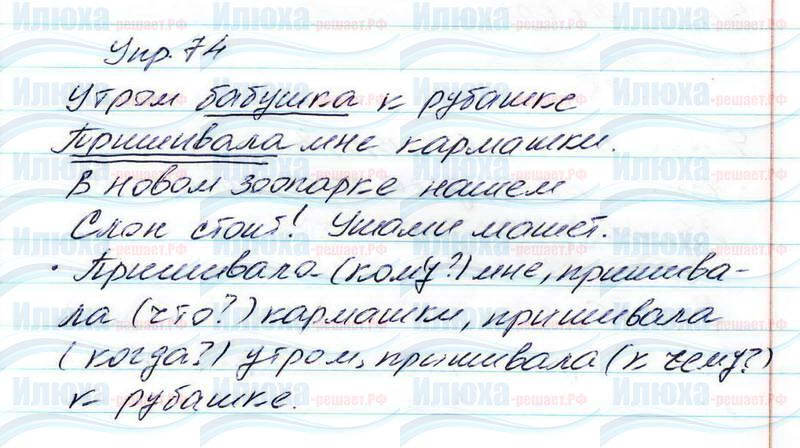 Упр. 74
Утром бабушка к рубашке
Пришивала мне кармашки.
В новом зоопарке нашем
Слон стоит! Ушами машет.
Пришивала (кому?) мне, пришива-
ла (что?) кармашки, пришивала
(когда?) утром, пришивала (к чему?)
к рубашке.
Илюха-решает.РФ